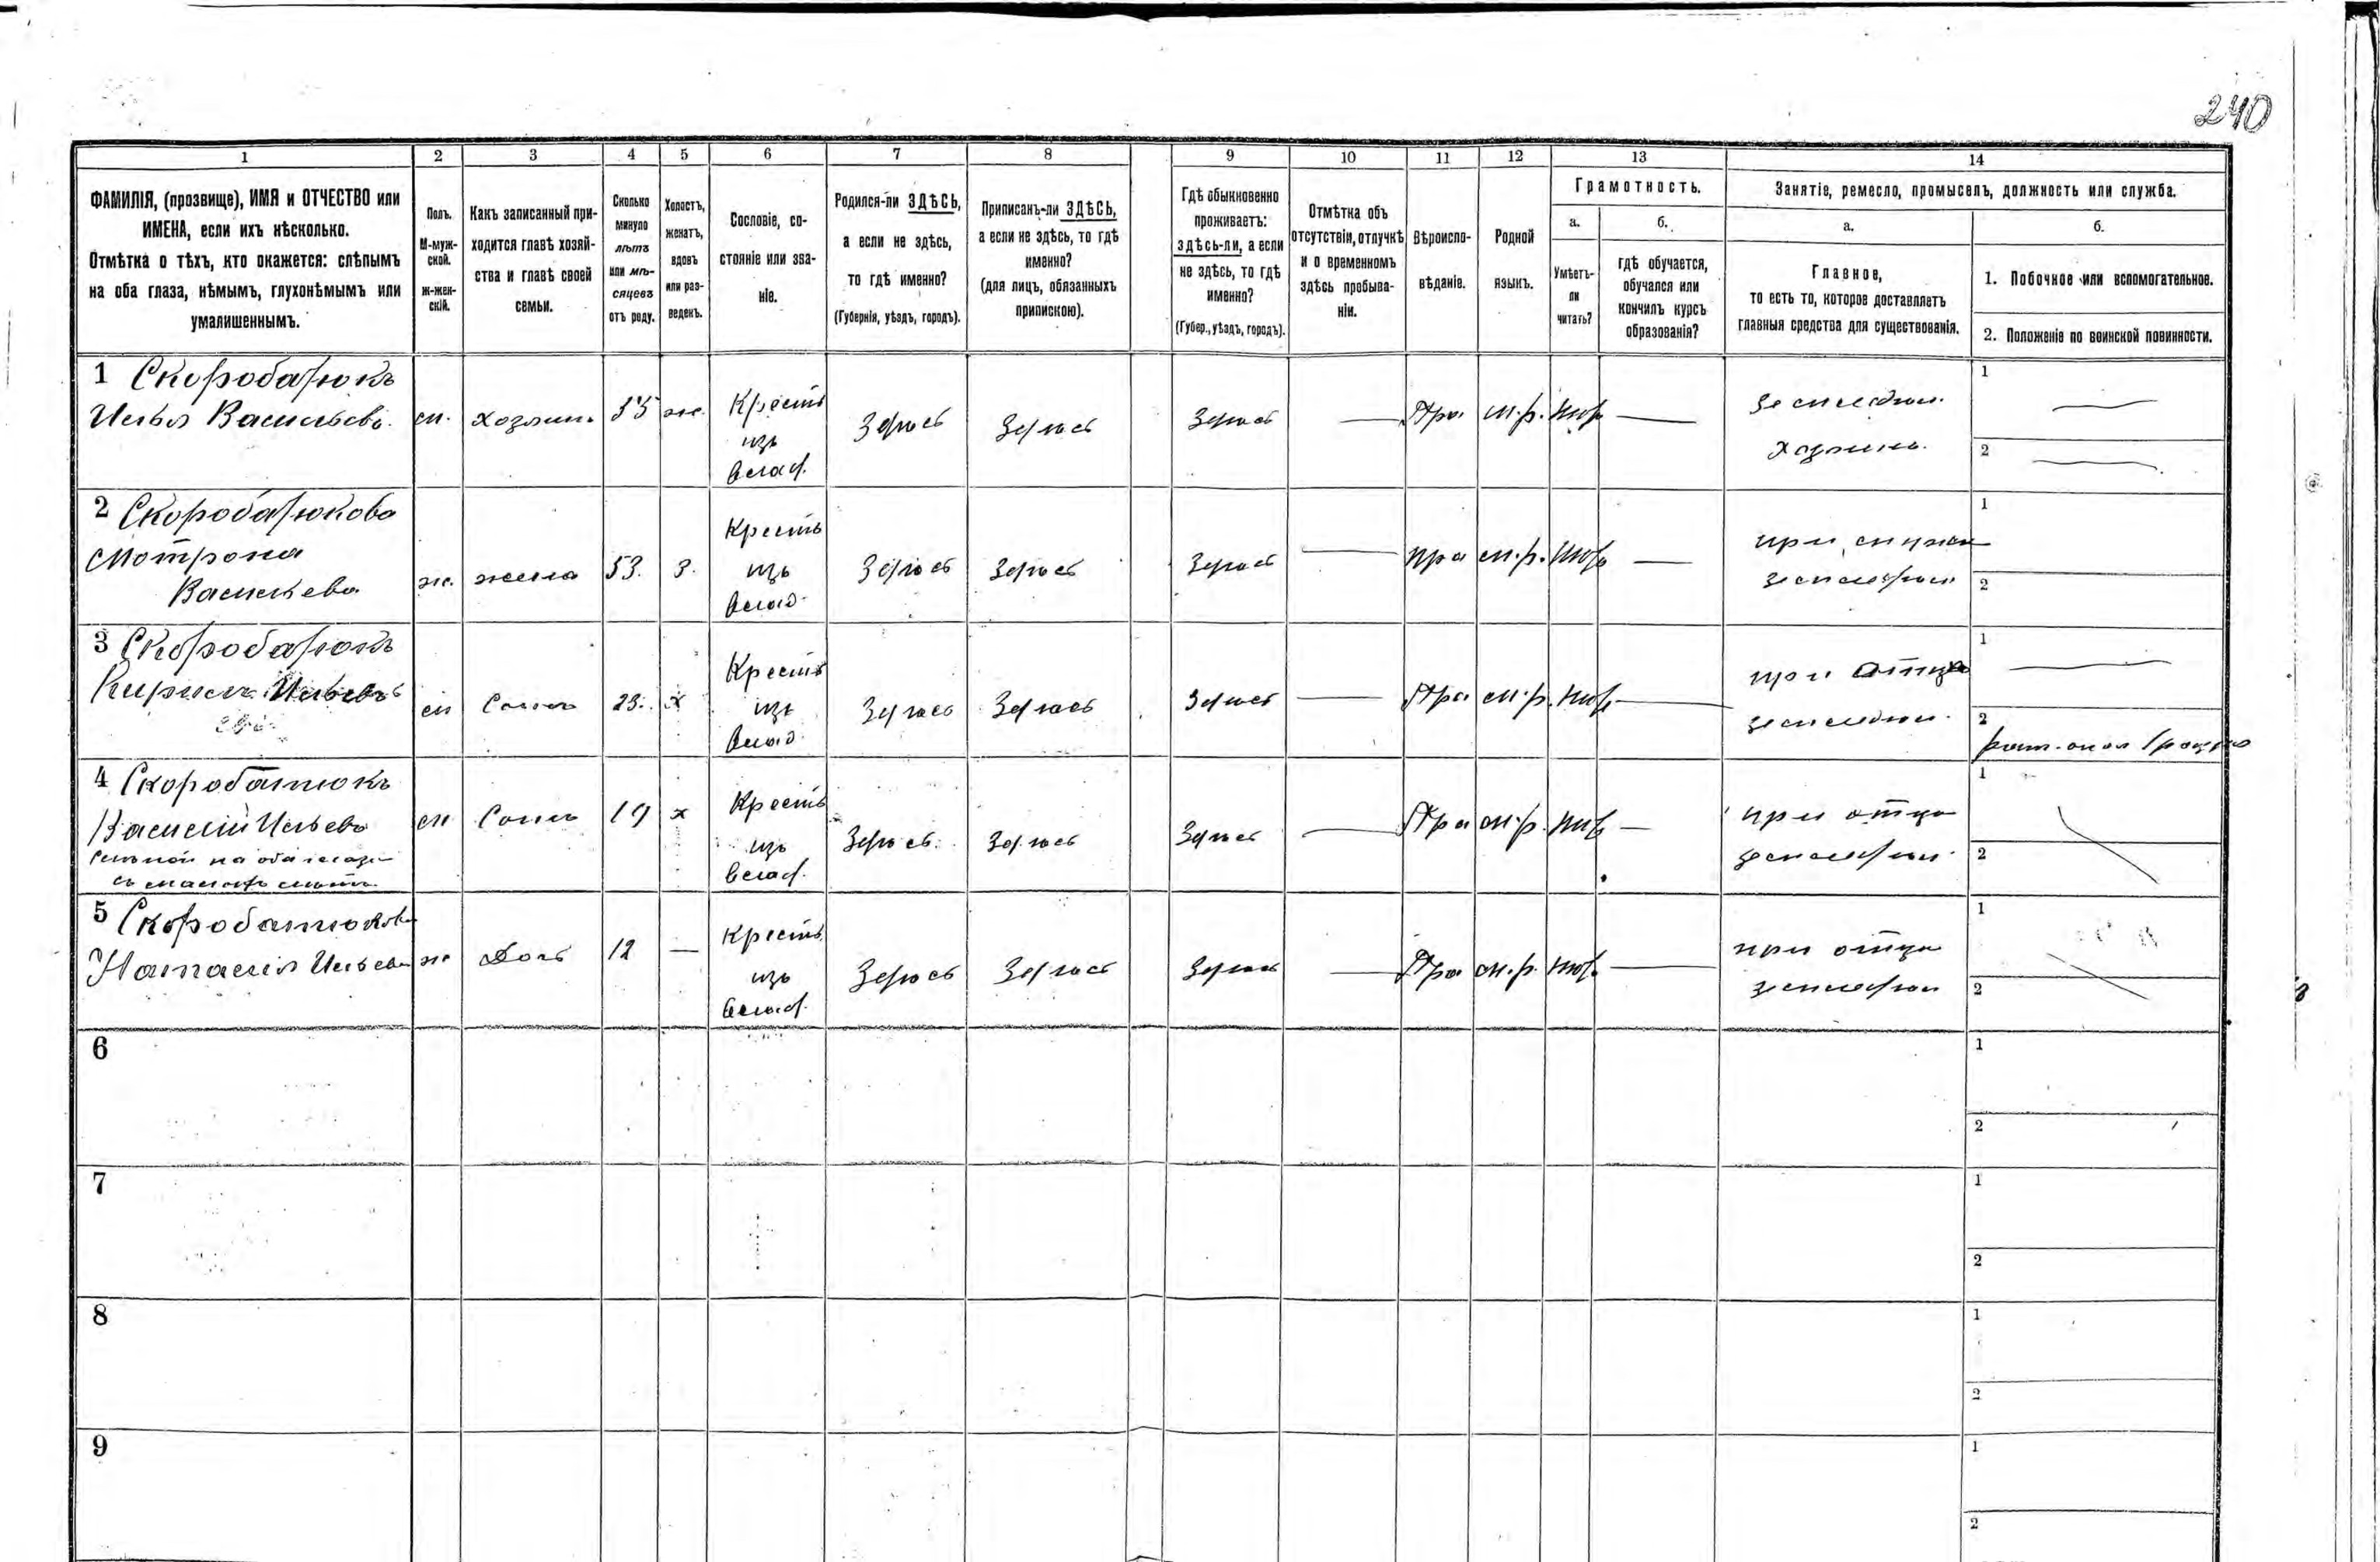 240
1 2 3 4 5 6 7 8 9 10 11 12 13 14
ФАМИЛІЯ, (прозвище), ИМЯ и ОТЧЕСТВО или
ИМЕНА, если ихъ нѣсколько.
Отмѣтка о тѣхъ, кто окажется: слѣпымъ
на оба глаза, нѣмымъ, глухонѣмымъ или
умалишеннымъ.
Полъ.
М-муж-
ской.
ж-жен-
скій.
Какъ записанный при-
ходится главѣ хозяй-
ства и главѣ своей
семьи.
Сколько
минуло
лѣтъ
или мѣ-
сяцевъ
отъ роду.
Холостъ,
женатъ,
вдовъ
или раз-
веденъ.
Сословіе, со-
стояніе или зва-
ніе.
Родился-ли ЗДѢСЬ,
а если не здѣсь,
то гдѣ именно?
(Губернія, уѣздъ, городъ).
Приписанъ-ли ЗДѢСЬ,
а если не здѣсь, то гдѣ
именно?
(для лицъ, обязанныхъ
припискою).
Гдѣ обыкновенно
проживаетъ:
здѣсь-ли, а если
не здѣсь, то гдѣ
именно?
(Губер., уѣздъ, городъ).
Отмѣтка объ
отсутствіи, отлучкѣ
и о временномъ
здѣсь пребыва-
ніи.
Вѣроиспо-
вѣданіе.
Родной
языкъ.
Грамотность.
а.
Умѣетъ-
ли
читать?
б.
гдѣ обучается,
обучался или
кончилъ курсъ
образованія?
Занятіе, ремесло, промыселъ, должность или служба.
а.
Главное,
то есть то, которое доставляетъ
главныя средства для существованія.
б.
1. Побочное или вспомогательное.
2. Положеніе по воинской повинности.
1 Скоробатюкъ
Илья Васильевъ м. хозяинъ 55 ж. Кресть изъ влад. Здѣсь Здѣсь Здѣсь — Пра м.р. нѣтъ —
земледел.
хозяинъ
1 —
2 —
2 Скоробатюкова
Мотрона
Васильева ж. жена 53. З. Кресть изъ влад. Здѣсь Здѣсь Здѣсь — пра м.р. нѣтъ —
при мужѣ
земледел
1
2
3 Скоробатюкъ
Кирилъ Ильевъ м Сынъ 23. х Кресть изъ влад. Здѣсь Здѣсь Здѣсь — Пра м.р. нѣтъ —
при отцѣ
земледел.
1 —
2
4 Скоробатюкъ
Василій Ильевъ м Сынъ 19 х Кресть изъ влад. Здѣсь Здѣсь Здѣсь — Пра м.р. нѣтъ —
слѣпой на оба глаза
съ малыхъ лѣтъ
при отцѣ
земледел.
1
2
5 Скоробатюкова
Наталія Ильева ж Дочь 12 — Кресть изъ влад. Здѣсь Здѣсь Здѣсь — Пра м.р. нѣтъ —
при отцѣ
земледел
1
2
6
1
2
7
1
2
8
1
2
9
1
2